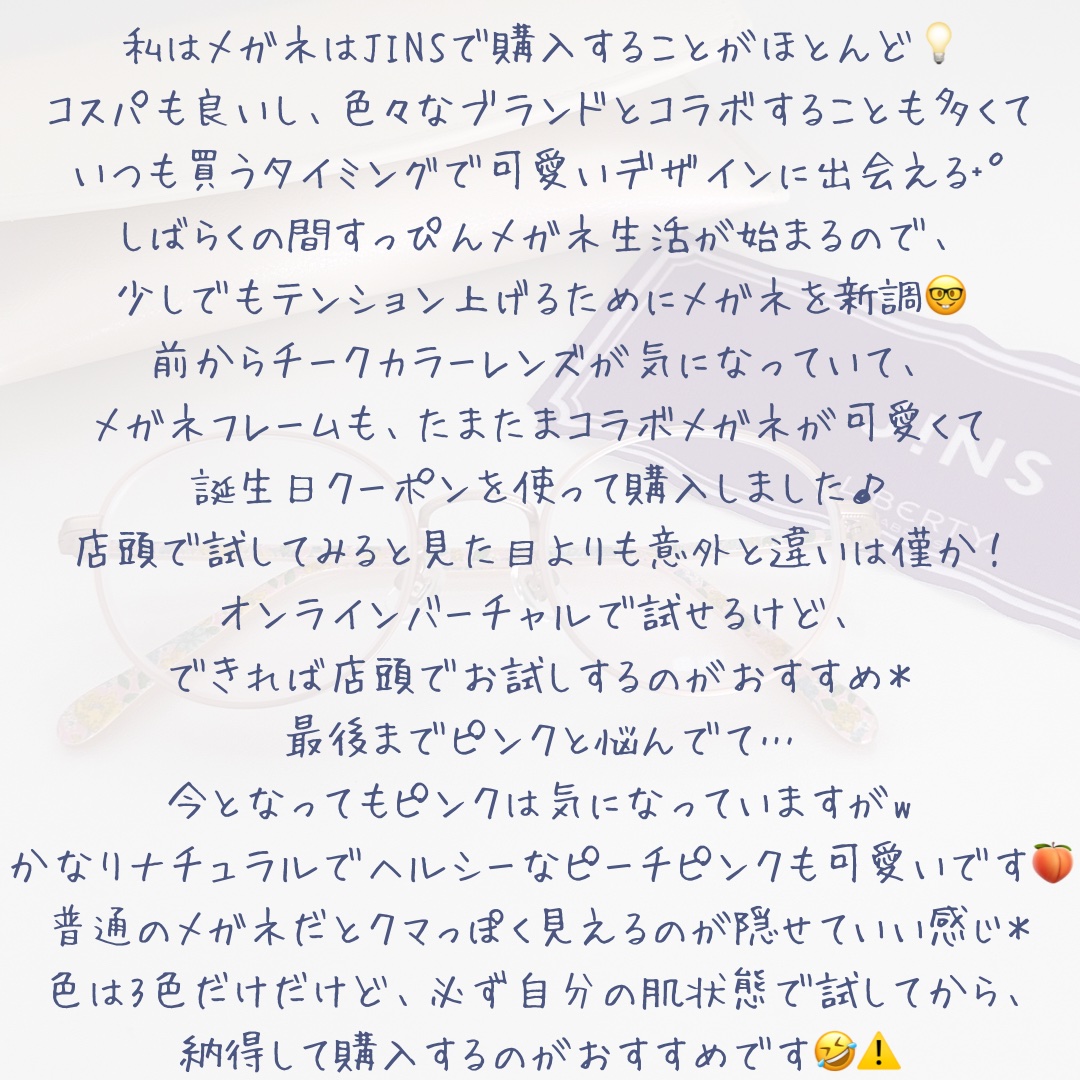 私はメガネはJINSで購入することがほとんど💡
コスパも良いし、色々なブランドとコラボすることも多くて
いつも買うタイミングで可愛いデザインに出会える˖°
しばらくの間すっぴんメガネ生活が始まるので、
少しでもテンション上げるためにメガネを新調🤓
前からチークカラーレンズが気になっていて、
メガネフレームも、たまたまコラボメガネが可愛くて
誕生日クーポンを使って購入しました♪
店頭で試してみると見た目よりも意外と違いは僅か!
オンラインバーチャルで試せるけど、
できれば店頭でお試しするのがおすすめ*
最後までピンクと悩んでて…
今となってもピンクは気になっていますがw
かなりナチュラルでヘルシーなピーチピンクも可愛いです🍑
普通のメガネだとクマっぽく見えるのが隠せていい感じ*
色は3色だけだけど、必ず自分の肌状態で試してから、
納得して購入するのがおすすめです🤣⚠️
JINS
LIBERTY